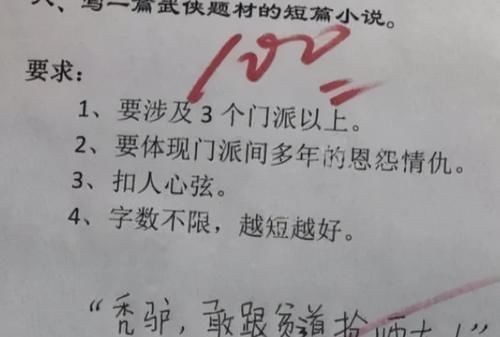 六、写一篇武侠题材的短篇小说。
100
要求：
1、要涉及3个门派以上。
2、要体现门派间多年的恩怨情仇。
3、扣人心弦。
4、字数不限，越短越好。
“秃驴，敢跟贫道抢师太！”